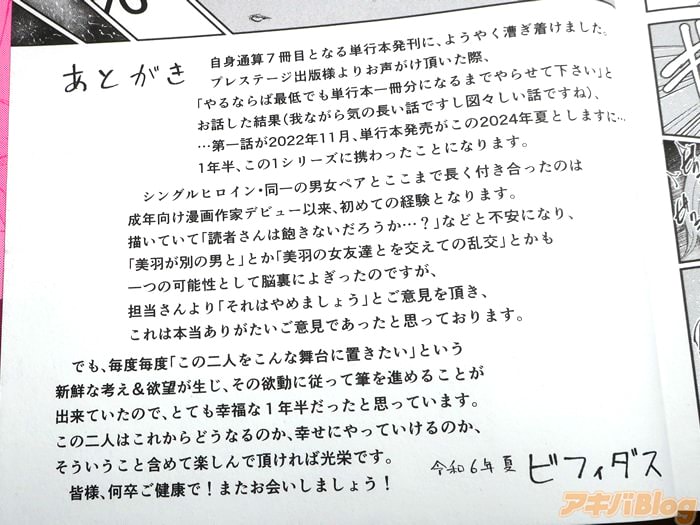 あとがき
自身通算7冊目となる単行本発刊に、ようやく漕ぎ着けました。
プレステージ出版様よりお声がけ頂いた際、
「やるならば最低でも単行本一冊分になるまでやらせて下さい」と
お話した結果(我ながら気の長い話ですし図々しい話ですね)、
…第一話が2022年11月、単行本発売がこの2024年夏としますに…
1年半、この1シリーズに携わったことになります。
シングルヒロイン・同一の男女ペアとここまで長く付き合ったのは
成年向け漫画作家デビュー以来、初めての経験となります。
描いていて「読者さんは飽きないだろうか…?」などと不安になり、
「美羽が別の男と」とか「美羽の女友達とを交えての乱交」とかも
一つの可能性として脳裏によぎったのですが、
担当さんより「それはやめましょう」とご意見を頂き、
これは本当ありがたいご意見であったと思っております。
でも、毎度毎度「この二人をこんな舞台に置きたい」という
新鮮な考え&欲望が生じ、その欲動に従って筆を進めることが
出来ていたので、とても幸福な1年半だったと思っています。
この二人はこれからどうなるのか、幸せにやっていけるのか、
そういうこと含めて楽しんで頂ければ光栄です。
皆様、何卒ご健康で!またお会いしましょう!
令和6年夏 ビフィダス
アキバBlog